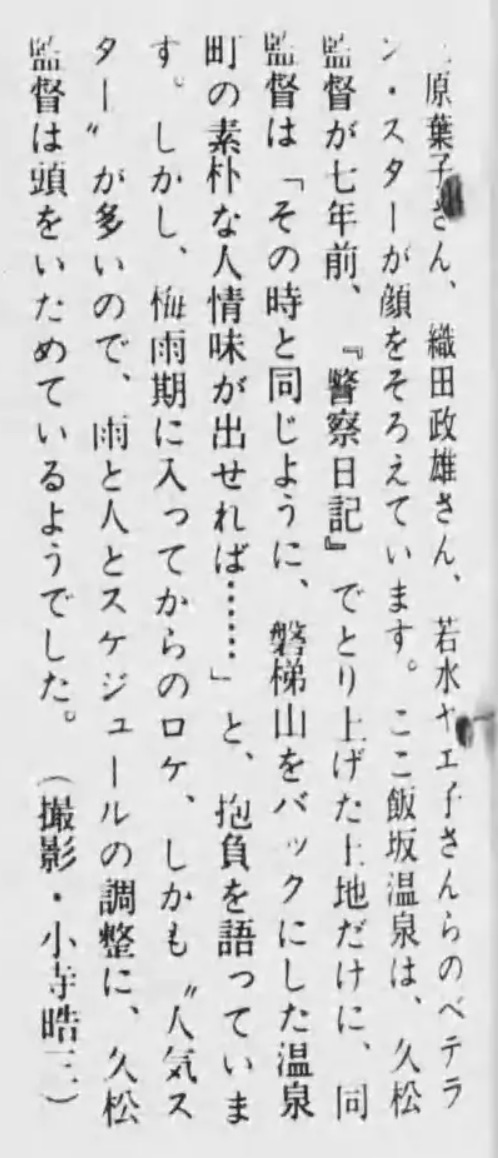 原葉子さん、織田政雄さん、若水ヤエ子さんらのベテラ
ン・スターが顔をそろえています。ここ飯坂温泉は、久松
監督が七年前、『警察日記』でとり上げた土地だけに、同
監督は「その時と同じように、磐梯山をバックにした温泉
町の素朴な人情味が出せれば……」と、抱負を語っていま
す。しかし、梅雨期に入ってからのロケ、しかも〝人気ス
ター〟が多いので、雨と人とスケジュールの調整に、久松
監督は頭をいためているようでした。（撮影・小寺晧三）